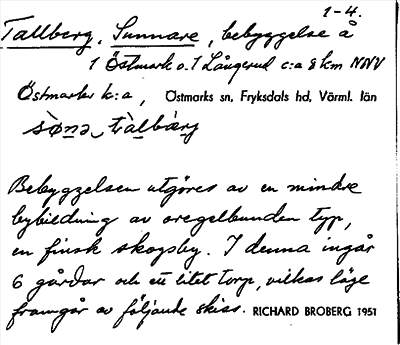 1-4.
Tallberg, Sunnare, bebyggelse å
1 Östmark o. 1 Långerud c:a 8 km NNV
Östmarks k:a, Östmarks sn, Fryksdals hd, Värml. län
Bebyggelsen utgöres av en mindre
bybildning av oregelbunden typ,
en finsk skogsby. I denna ingår
6 gårdar och ett litet torp, vilkas läge
framgår av följande skiss. RICHARD BROBERG 1951